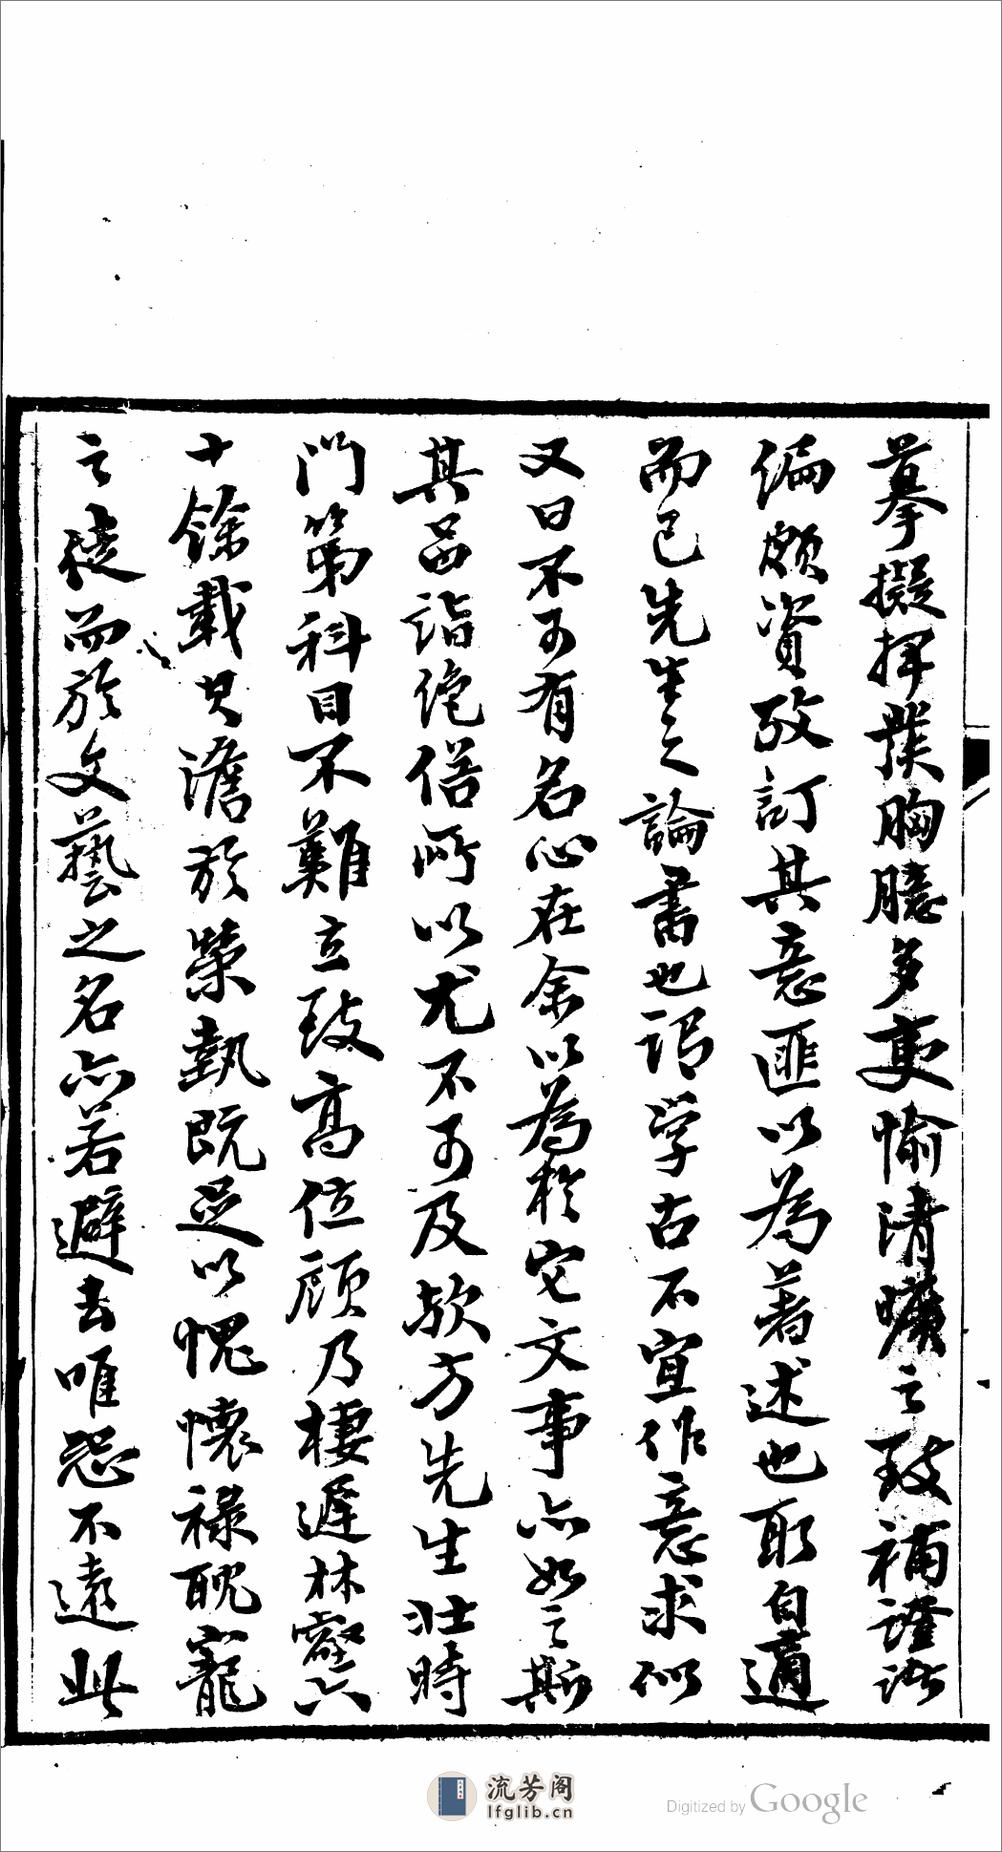 摹擬揮攥胸臆多更愉清曠之致補證諸
編頗資攷訂其意匪以為著述也取自適
而已先生之論書也謂学古不宜作意求似
又曰不可有名心在余以為於它文事亦如之斯
其品詣絶倍所以尤不可及歟方先生壯時
門第科目不難立致髙位顧乃棲遲林壑六
十餘載其澹於榮埶既足以愧懷祿醜寵
之徒而於文藝之名亦若避去唯恐不遠此
流芳阁
lfglib.cn
Digitized by Google